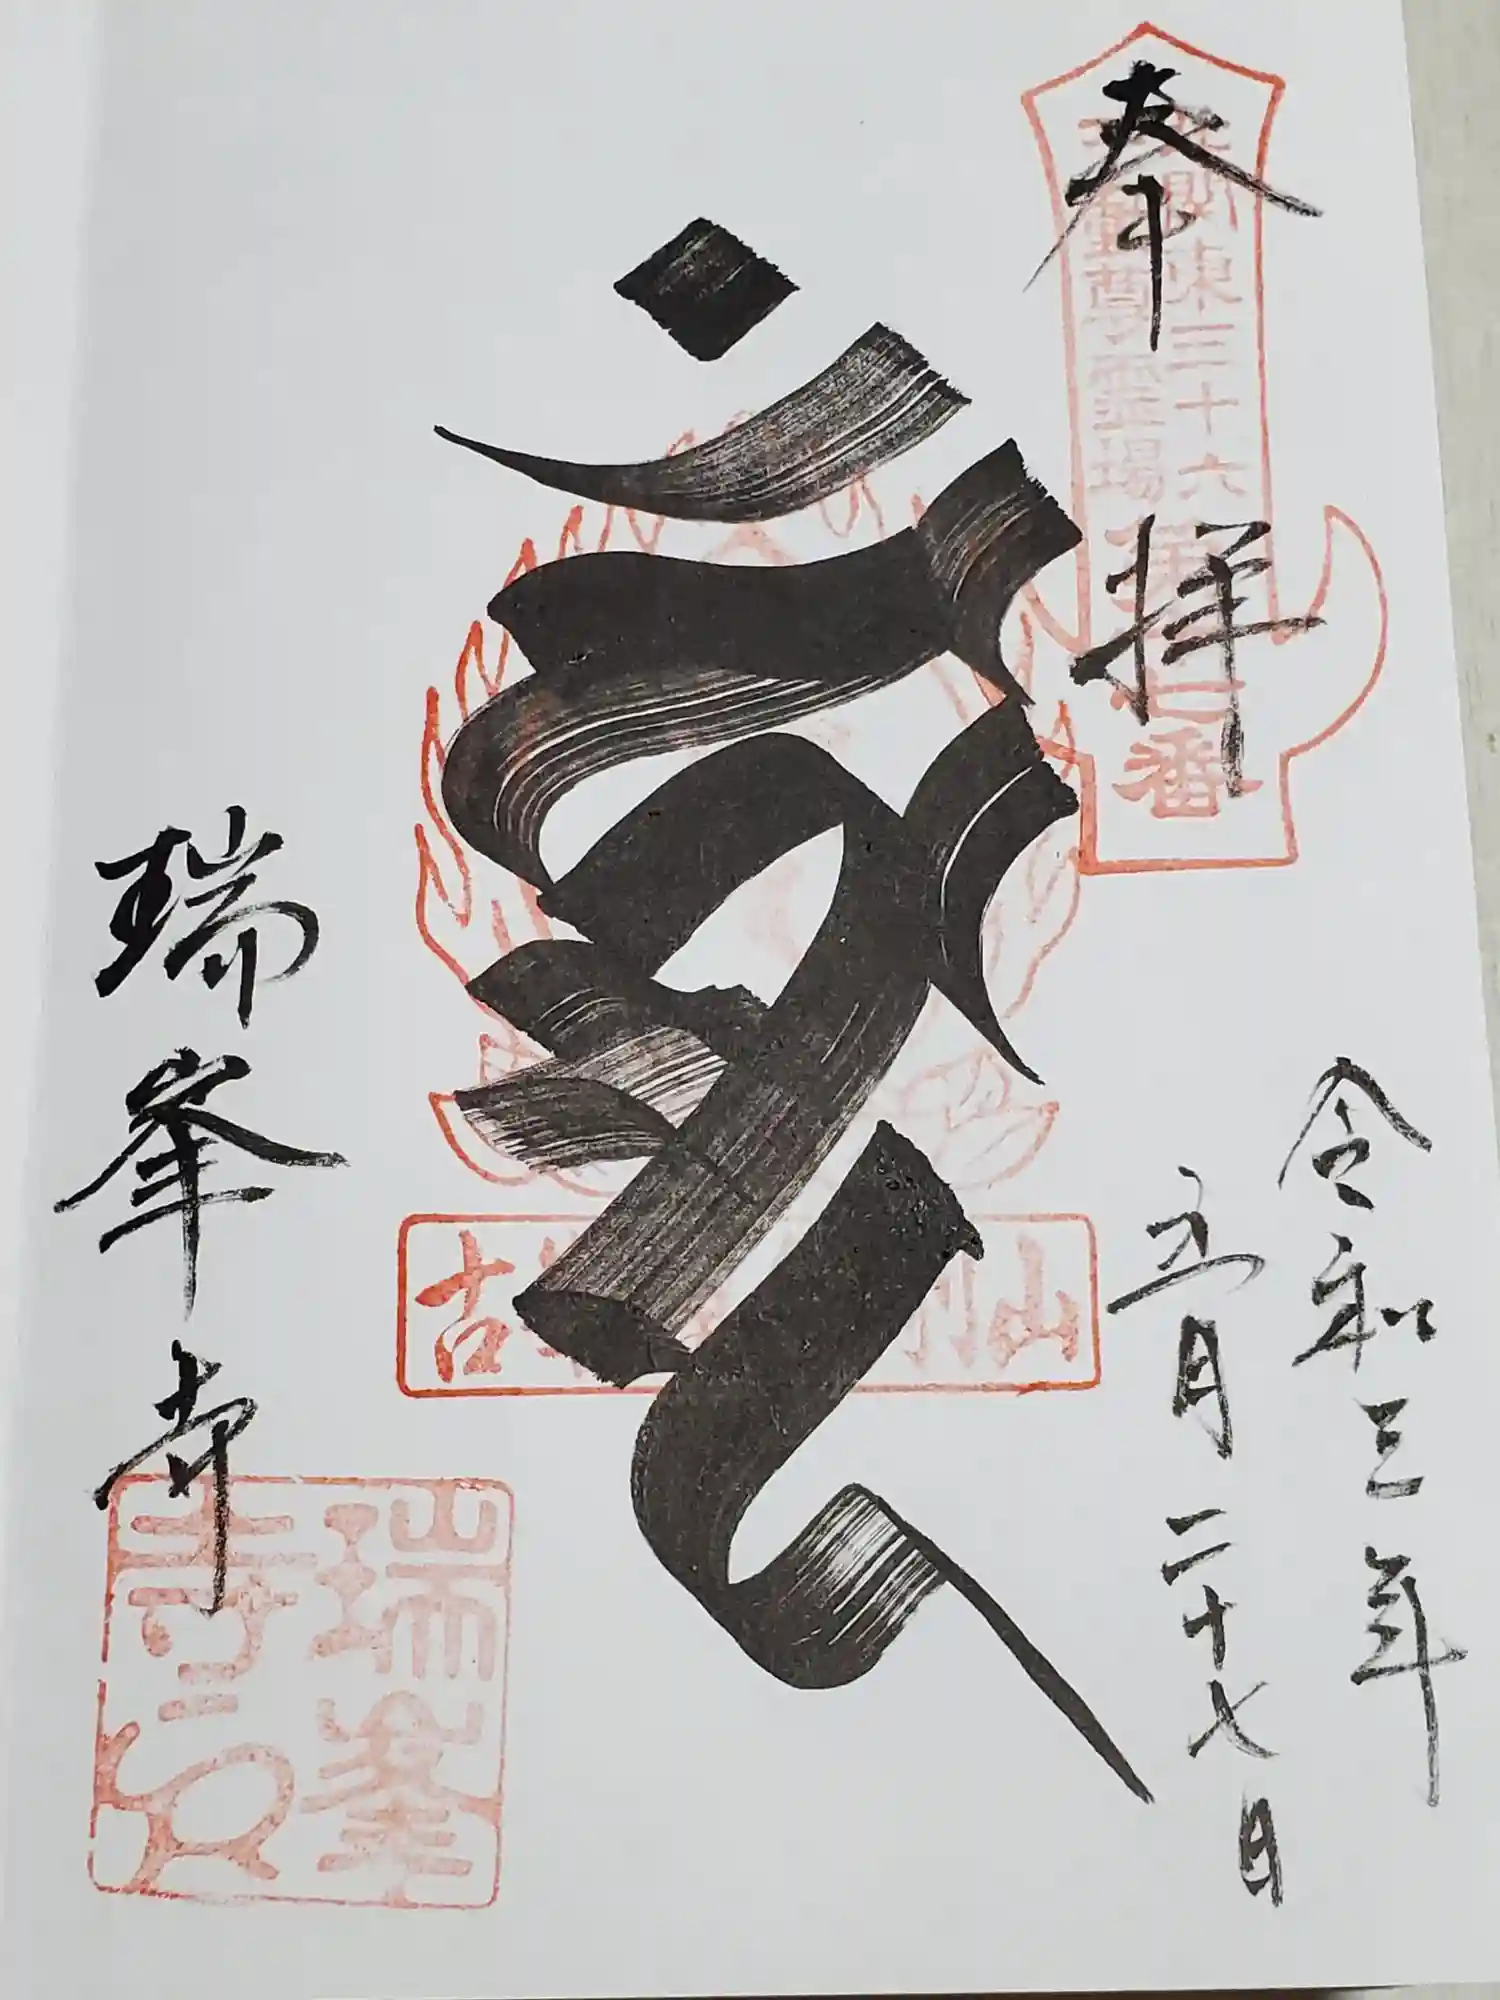 奉拝
北関東三十六
不動尊霊場
番
令和三年
五月二十七日
山
古
瑞峯寺
瑞峯
寺之印